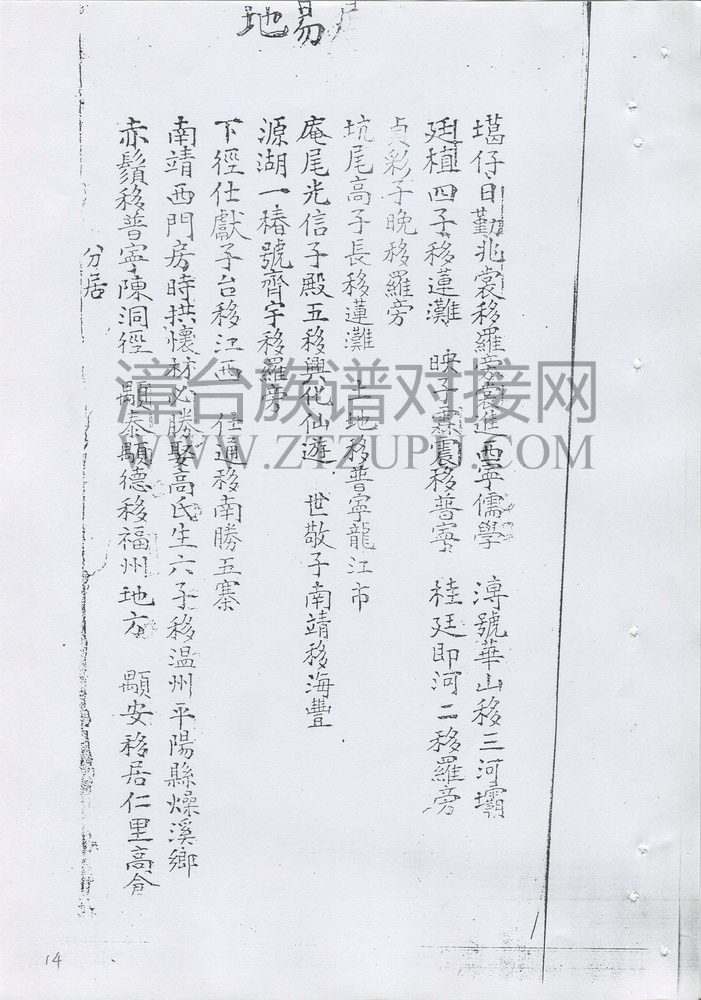 易地
墈仔日勤兆裳移羅旁裳進西寧儒學 溥號華山移三河壩
廷植四子移蓮灘 映子霖震移普寧 桂廷即河二移羅旁
貞彩子晚移羅旁
坑尾高子長移蓮灘 上地移普寧龍江市
庵尾光信子殿五移興化仙遊 世敬子南靖移海豐
源湖一椿號齊宇移羅旁
下徑仕獻子台移江西 仕通移南勝五寨
南靖西門房時拱懷材必勝娶高氏生六子移溫州平陽縣燥溪鄉
赤鬚移普寧陳洞徑 顒泰顒德移福州地方 顒安移居仁里高倉
分居
漳台族谱对接网
WWW.ZTZUPU.COM
14